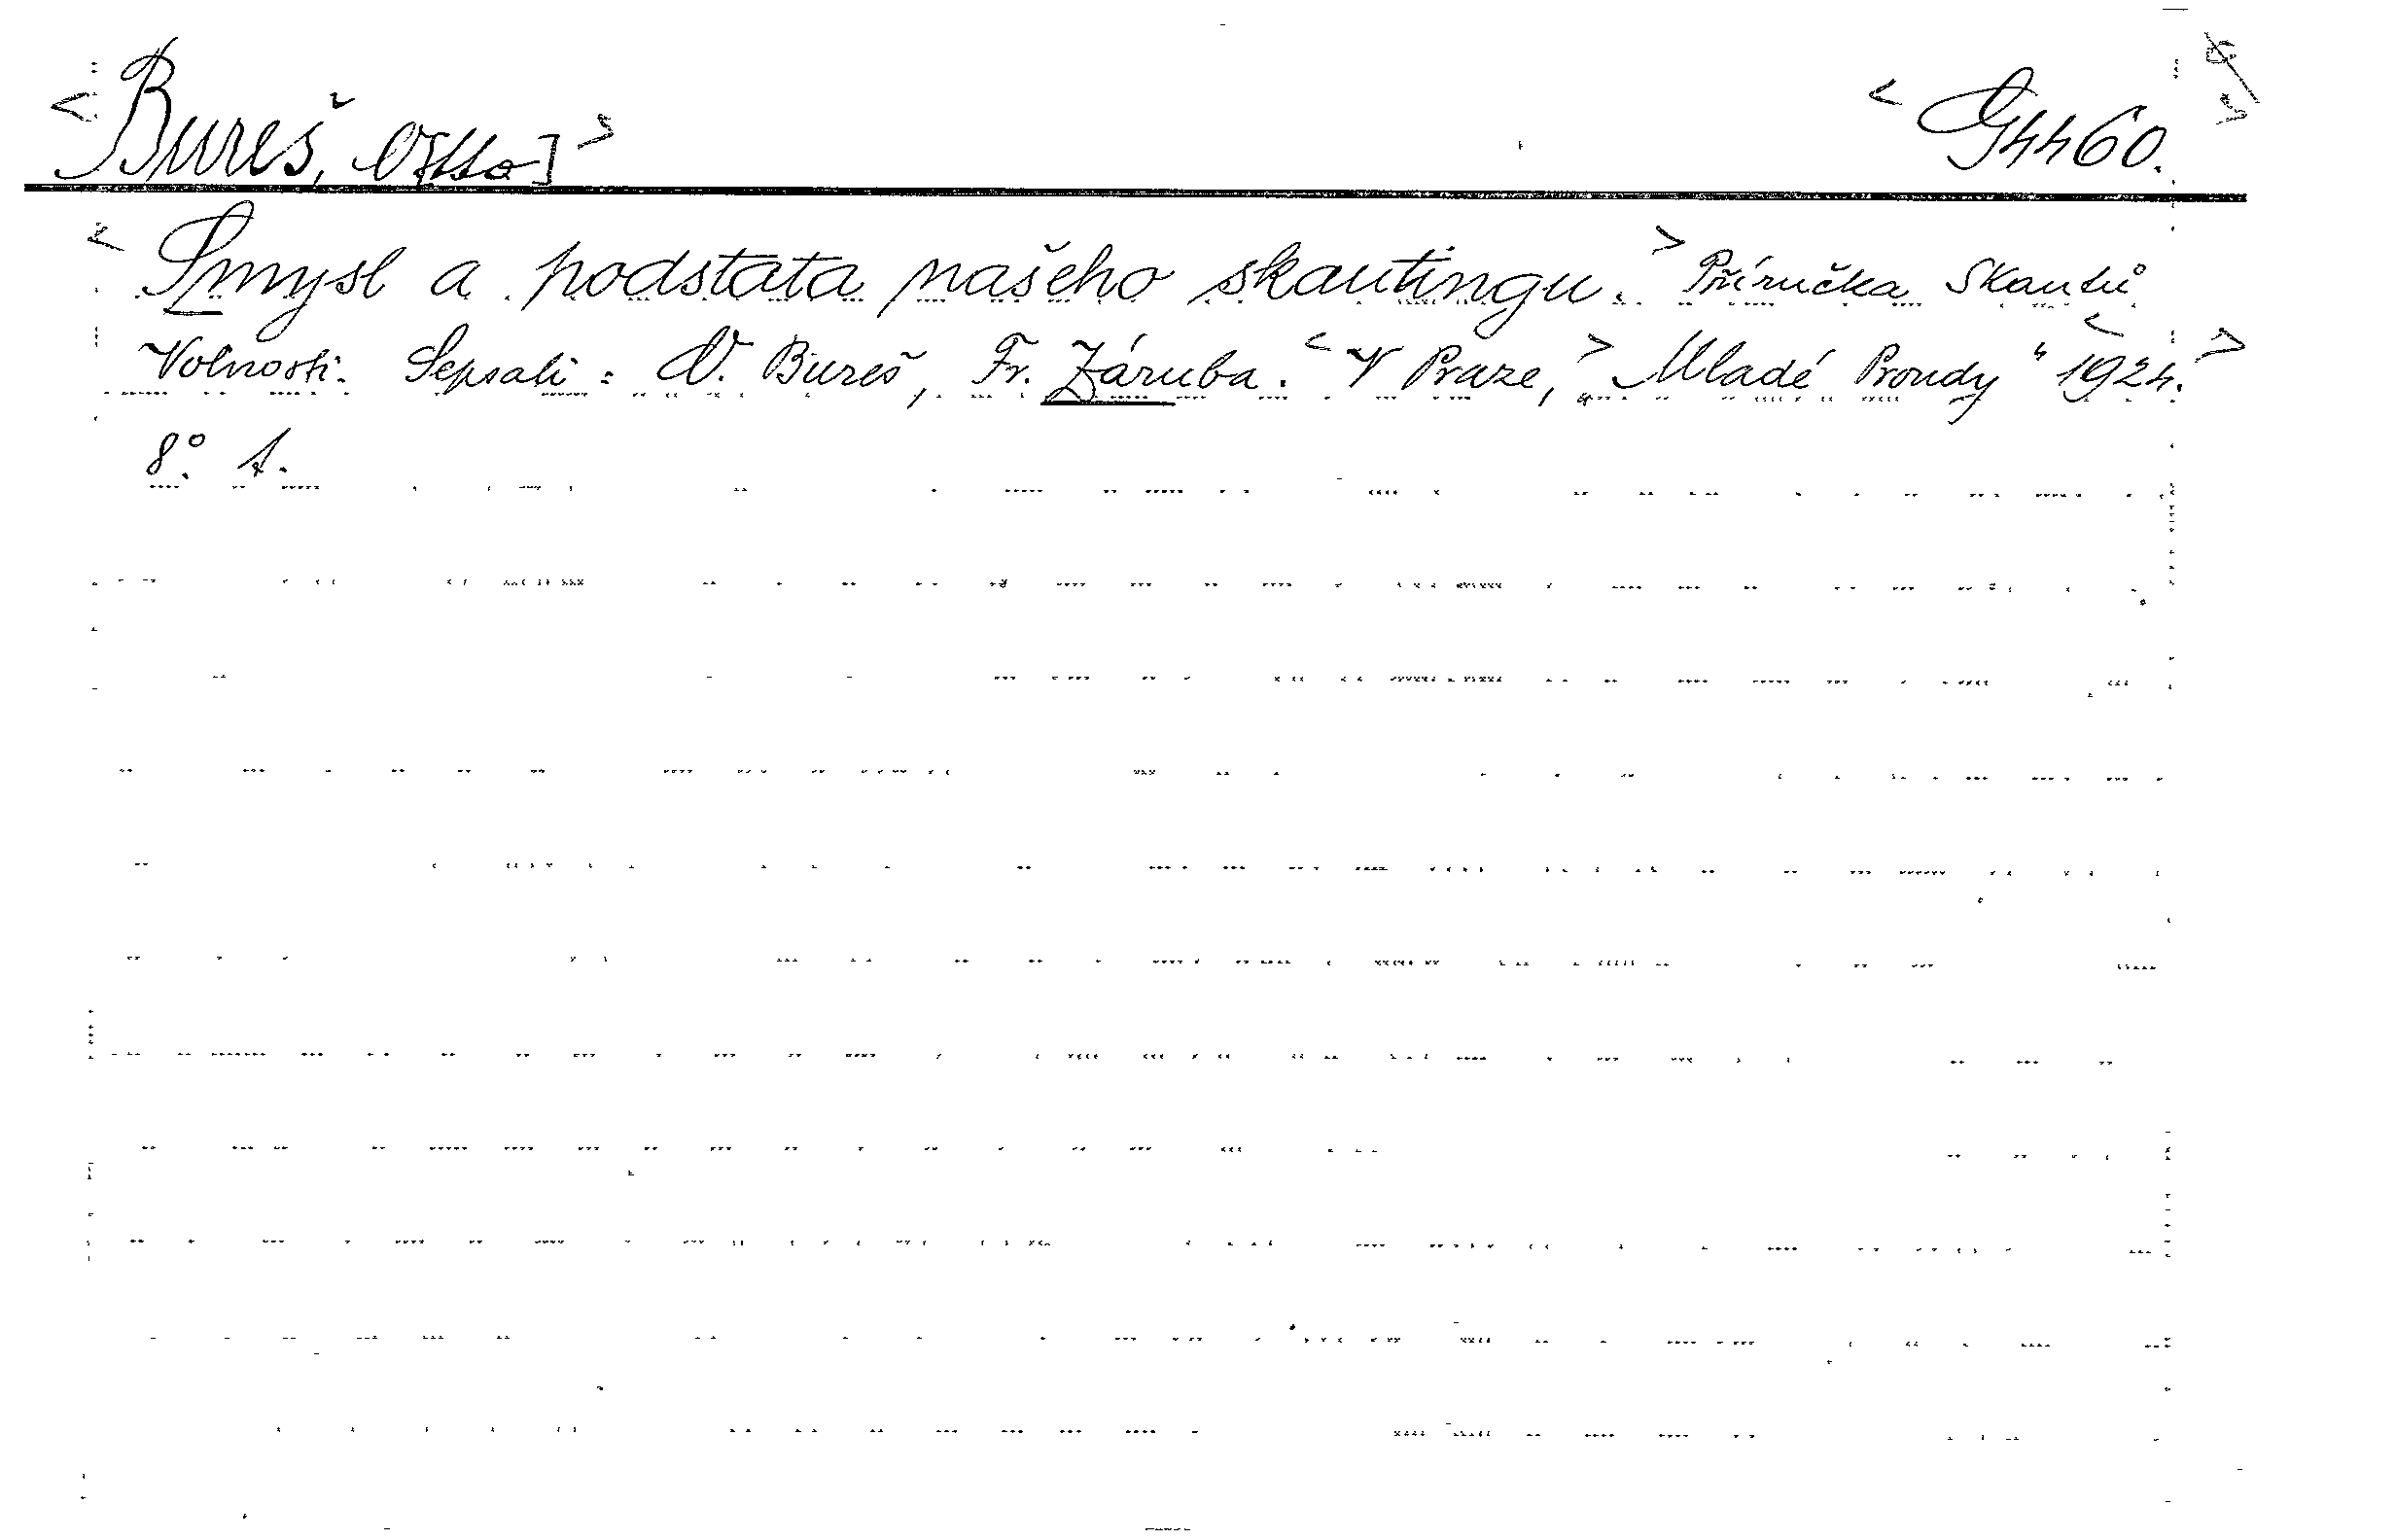 <Bureš, O[tto]> <G 4460.>
<Smysl a podstata našeho skautingu.> Příručka Skautů
Volnosti. Sepsali: O. Bureš, Fr. Záruba. <V Praze,> „Mladé Proudy" <1924.>
8°. 1.